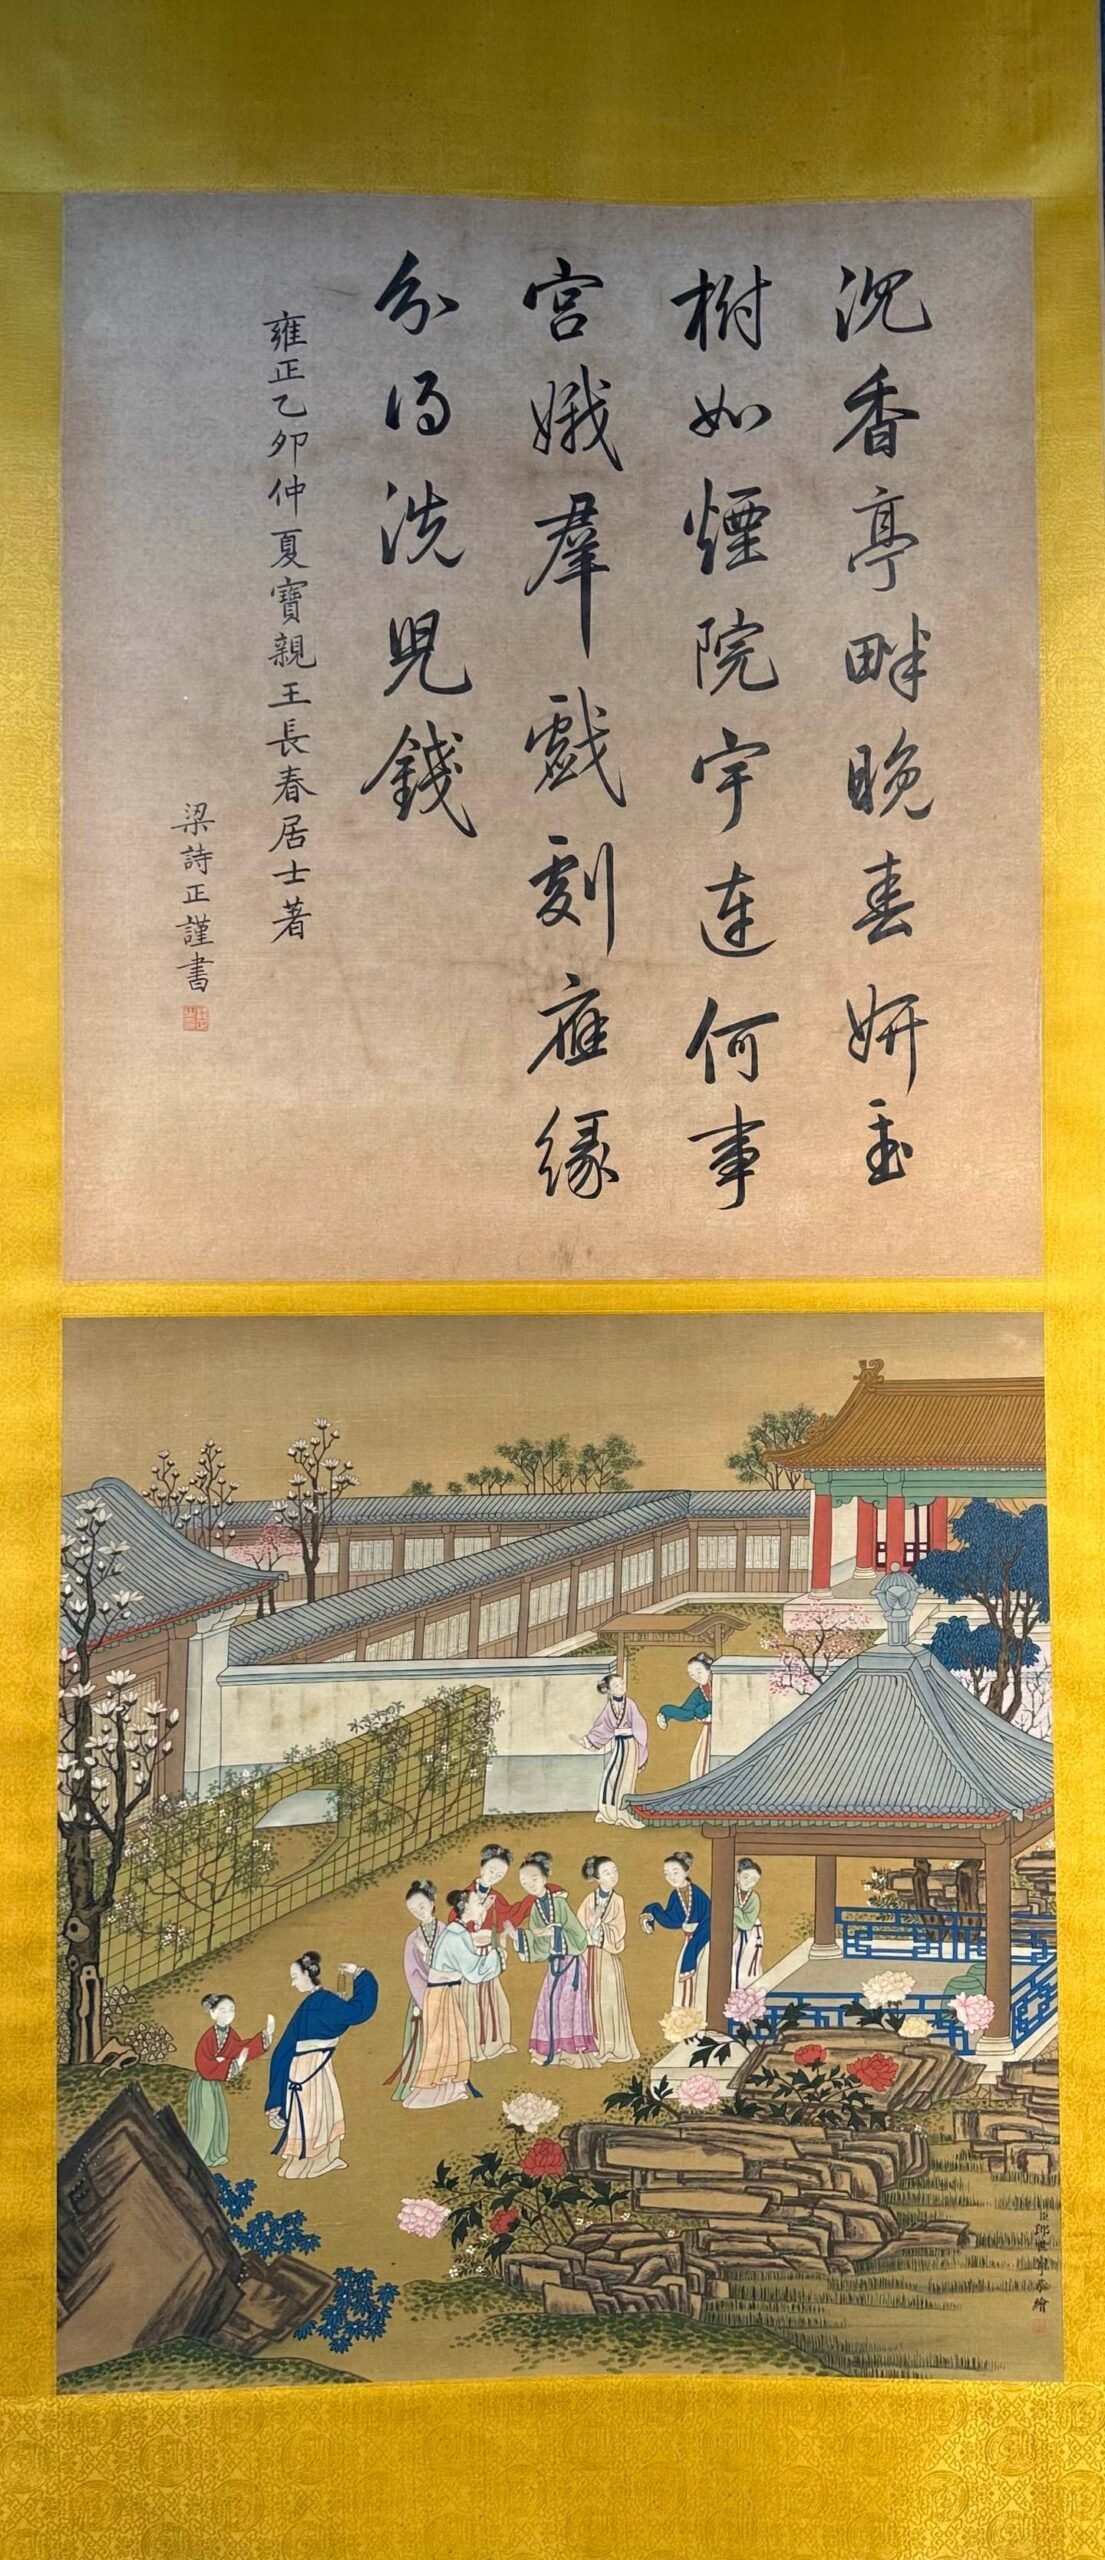 沉香亭畔晚春妍玉
樹如煙院宇連何事
宮娥羣戲劇應緣
分得洗兒錢
雍正乙卯仲夏寶親王長春居士著
梁詩正謹書
臣郎世寧恭繪